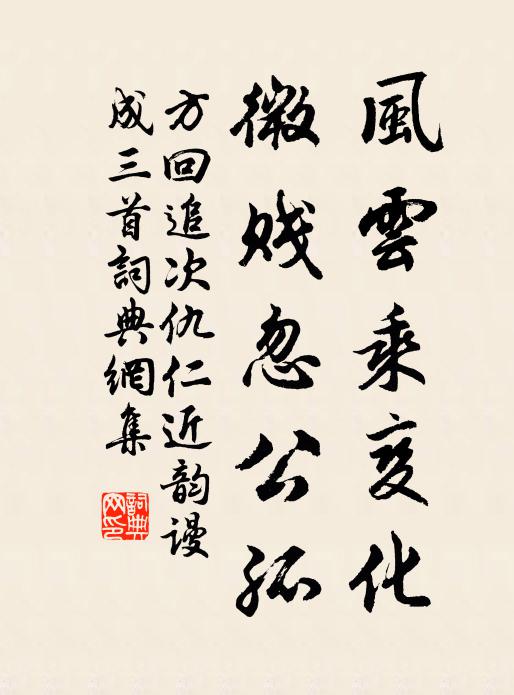 風雲乘变化
微贱忽公孤
方回追次仇仁近韵谩
成三首詞典網集
詞典
网印